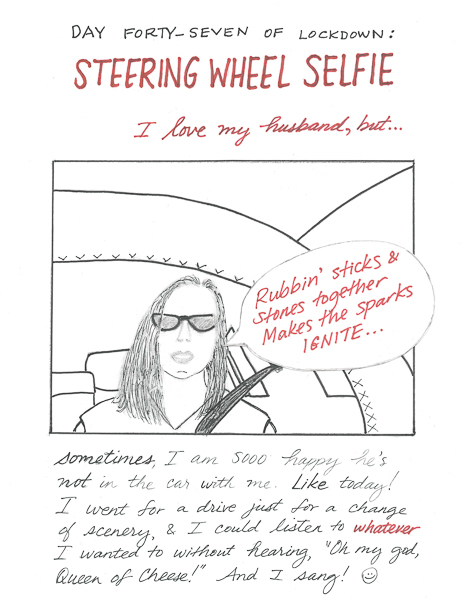 DAY FORTY-SEVEN OF LOCKDOWN:
STEERING WHEEL SELFIE
I love my husband, but...
Rubbin' sticks &
stones together
Makes the sparks
IGNITE...
sometimes, I am SOOO happy he's
not in the car with me. Like today!
I went for a drive just for a change
of scenery, & I could listen to whatever
I wanted to without hearing, "Oh my god,
Queen of Cheese!" And I sang! ☺